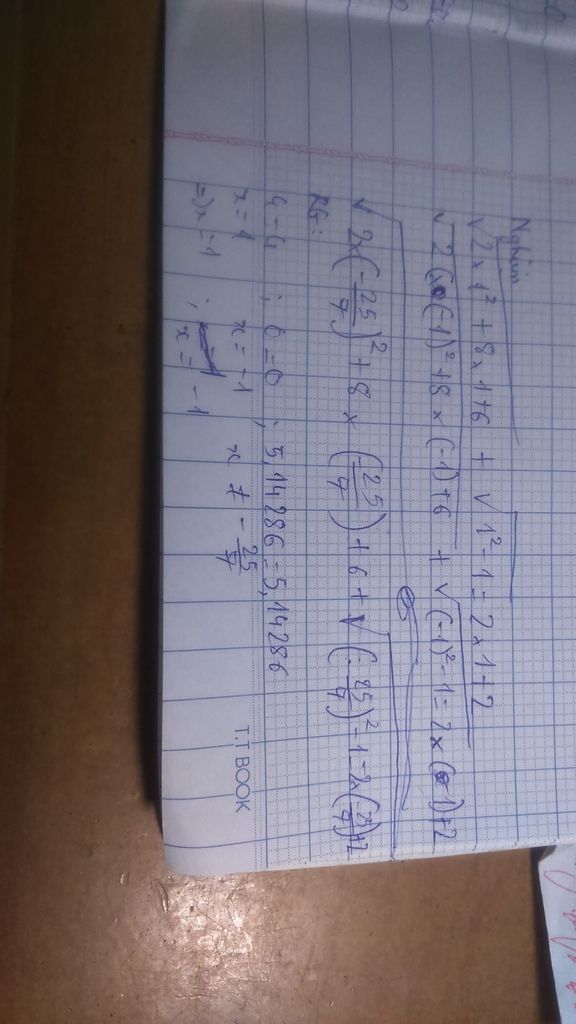 Nghiệm
√2 x 1² + 8 x 1 + 6 + √1² - 1 = 2 x 1 + 2
√2 x (-1)² + 8 x (-1) + 6 + √(-1)² - 1 = 2 x (-1) + 2
√2 x (-25/7)² + 8 x (-25/7) + 6 + √(-25/7)² - 1 = 2 x (-25/7) + 2
RG:
4 = 4 ; 0 = 0 ; 5,14286 = 5,14286
x = 1 x = -1 x ≠ -25/7
=> x = 1 ; x = -1
T.T BOOK